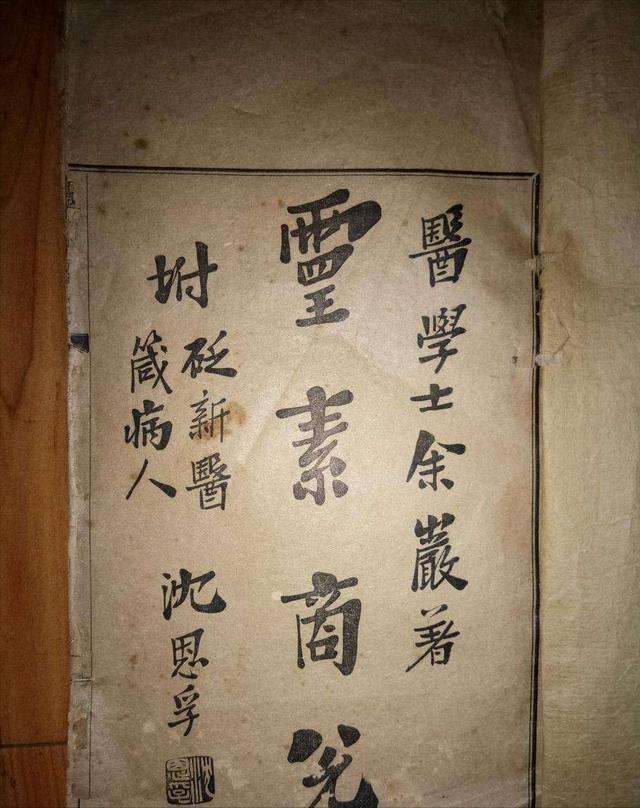 醫學士余巖著
靈素商兌
坿
砭新醫
箴病人
沈恩孚
沈恩孚